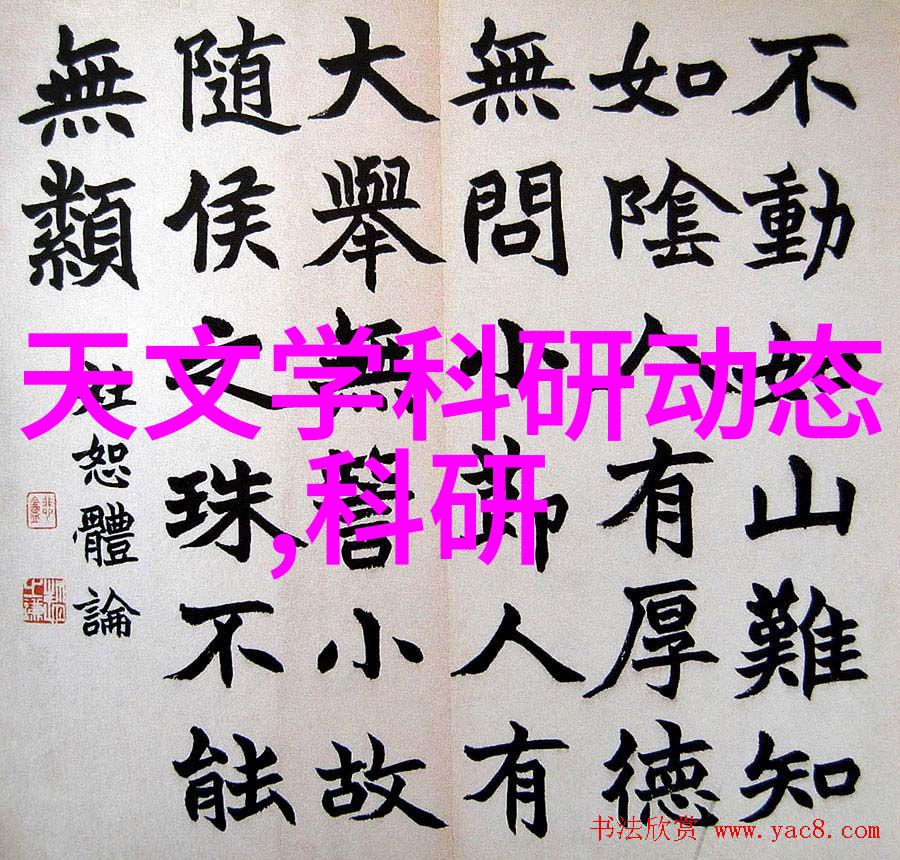 不動如山難知
如陰人有厚德
無問小節人有
大舉無訾小故
隨侯之珠不能
無纇
杜恕體論
天文学科研动态
,科研
书法欣赏 www.yac8.com